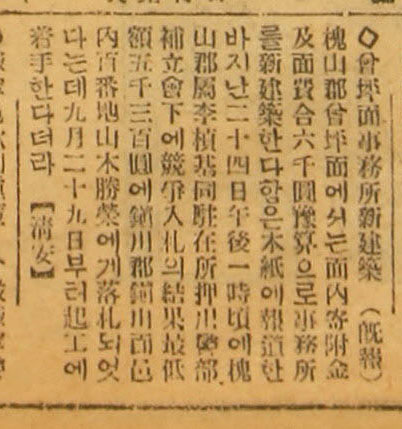 ◇曾坪面事務所新建築 (旣報)
槐山郡曾坪面에서는面內寄附金
及面費合六千圓豫算으로事務所
를新建築한다함은本紙에報道한
바지난二十四日午後一時頃에槐
山郡屬李楨基同駐在所押川警部
補立會下에競爭入札의結果最低
額五千三百圓에鎭川郡鎭川面邑
內百番地山本勝榮에게落札되엿
다는데九月二十九日부터起工에
着手한다더라【淸安】